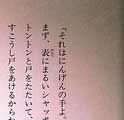 「それはにんげんの手よ。
まず、表にまるいシャッポ
トントンと戸をたたいて、
すこうし戸をあけるからね